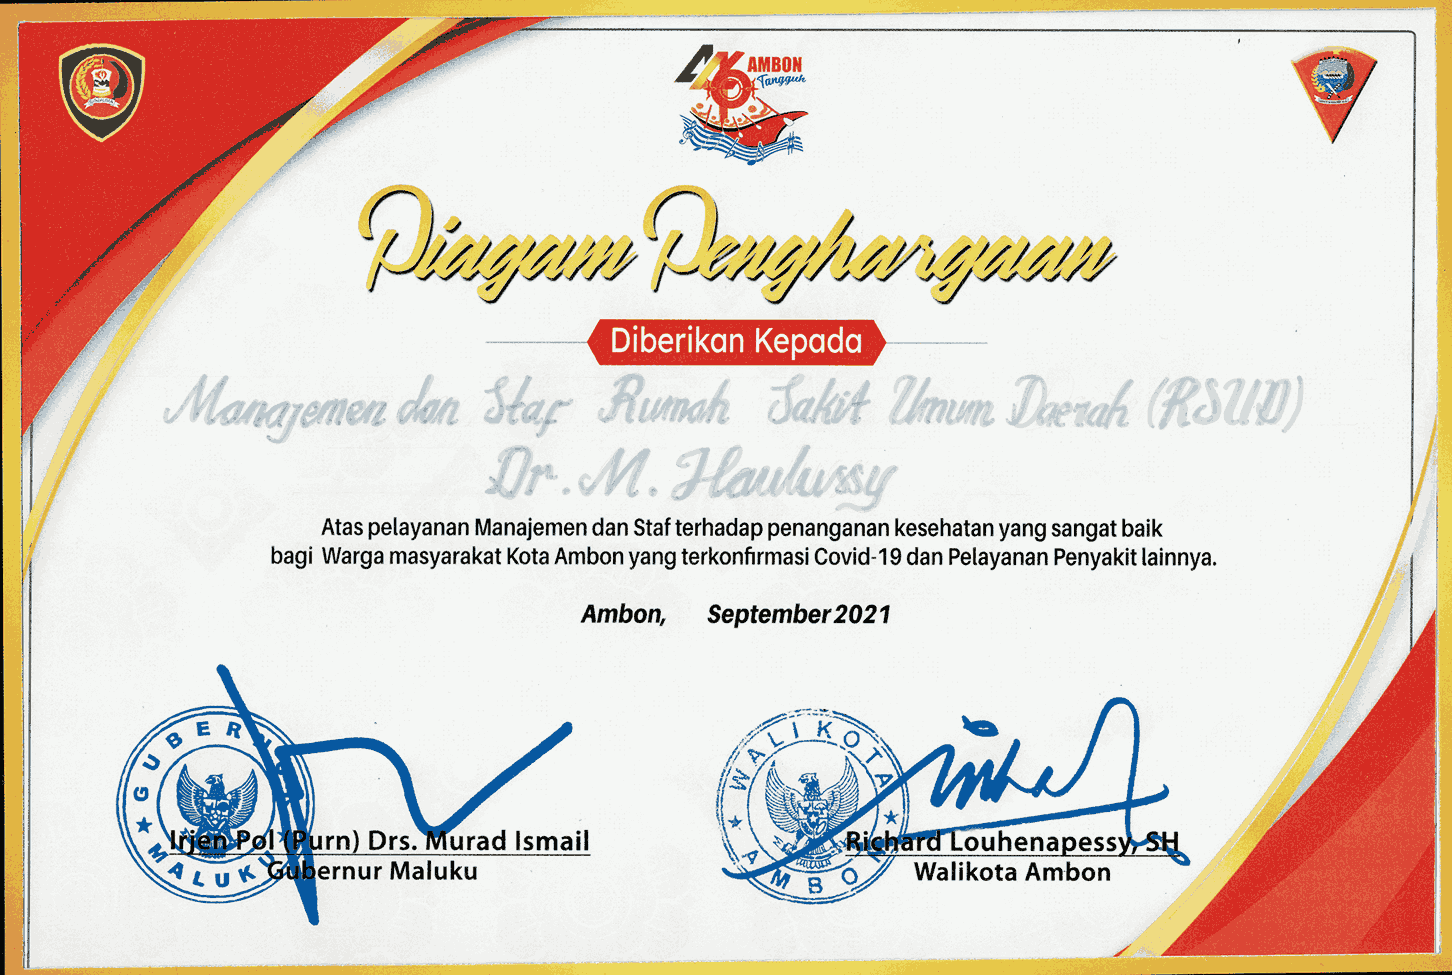 446 AMBON
Tangguh
Piagam Penghargaan
Diberikan Kepada
Manajemen dan Staf Rumah Sakit Umum Daerah (RSUD)
Dr. M. Haulussy
Atas pelayanan Manajemen dan Staf terhadap penanganan kesehatan yang sangat baik
bagi Warga masyarakat Kota Ambon yang terkonfirmasi Covid-19 dan Pelayanan Penyakit lainnya.
Ambon, September 2021
GUBERNUR
MALUKU
WALIKOTA
AMBON
Irjen Pol (Purn) Drs. Murad Ismail
Gubernur Maluku
Richard Louhenapessy, SH
Walikota Ambon